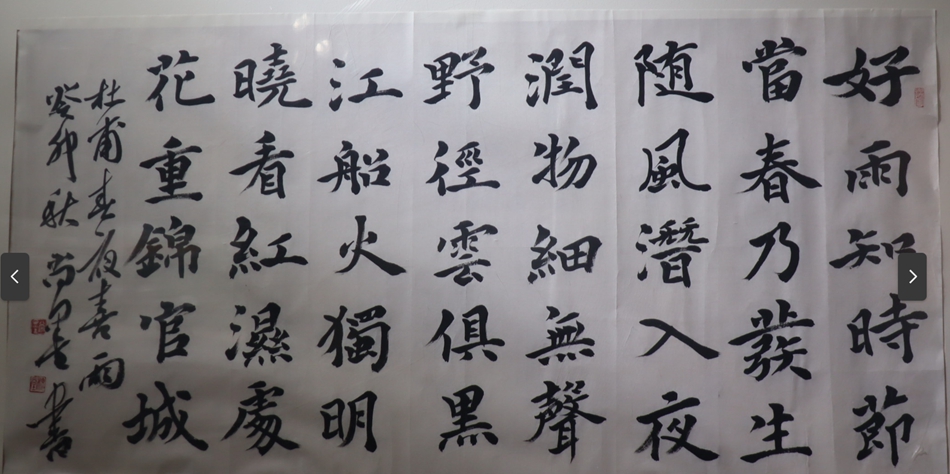 好雨知時節
當春乃發生
随風潛入夜
潤物細無聲
野徑雲俱黑
江船火獨明
曉看紅濕處
花重錦官城
杜甫春夜喜雨
癸卯秋
書